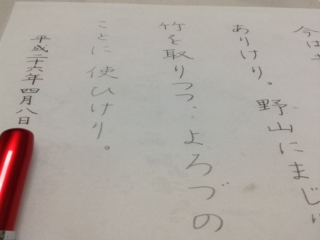 今は
ありけり。野山にまじ
竹を取りつつ:よろづの
ことに使ひけり。
平成二十六年四月八日